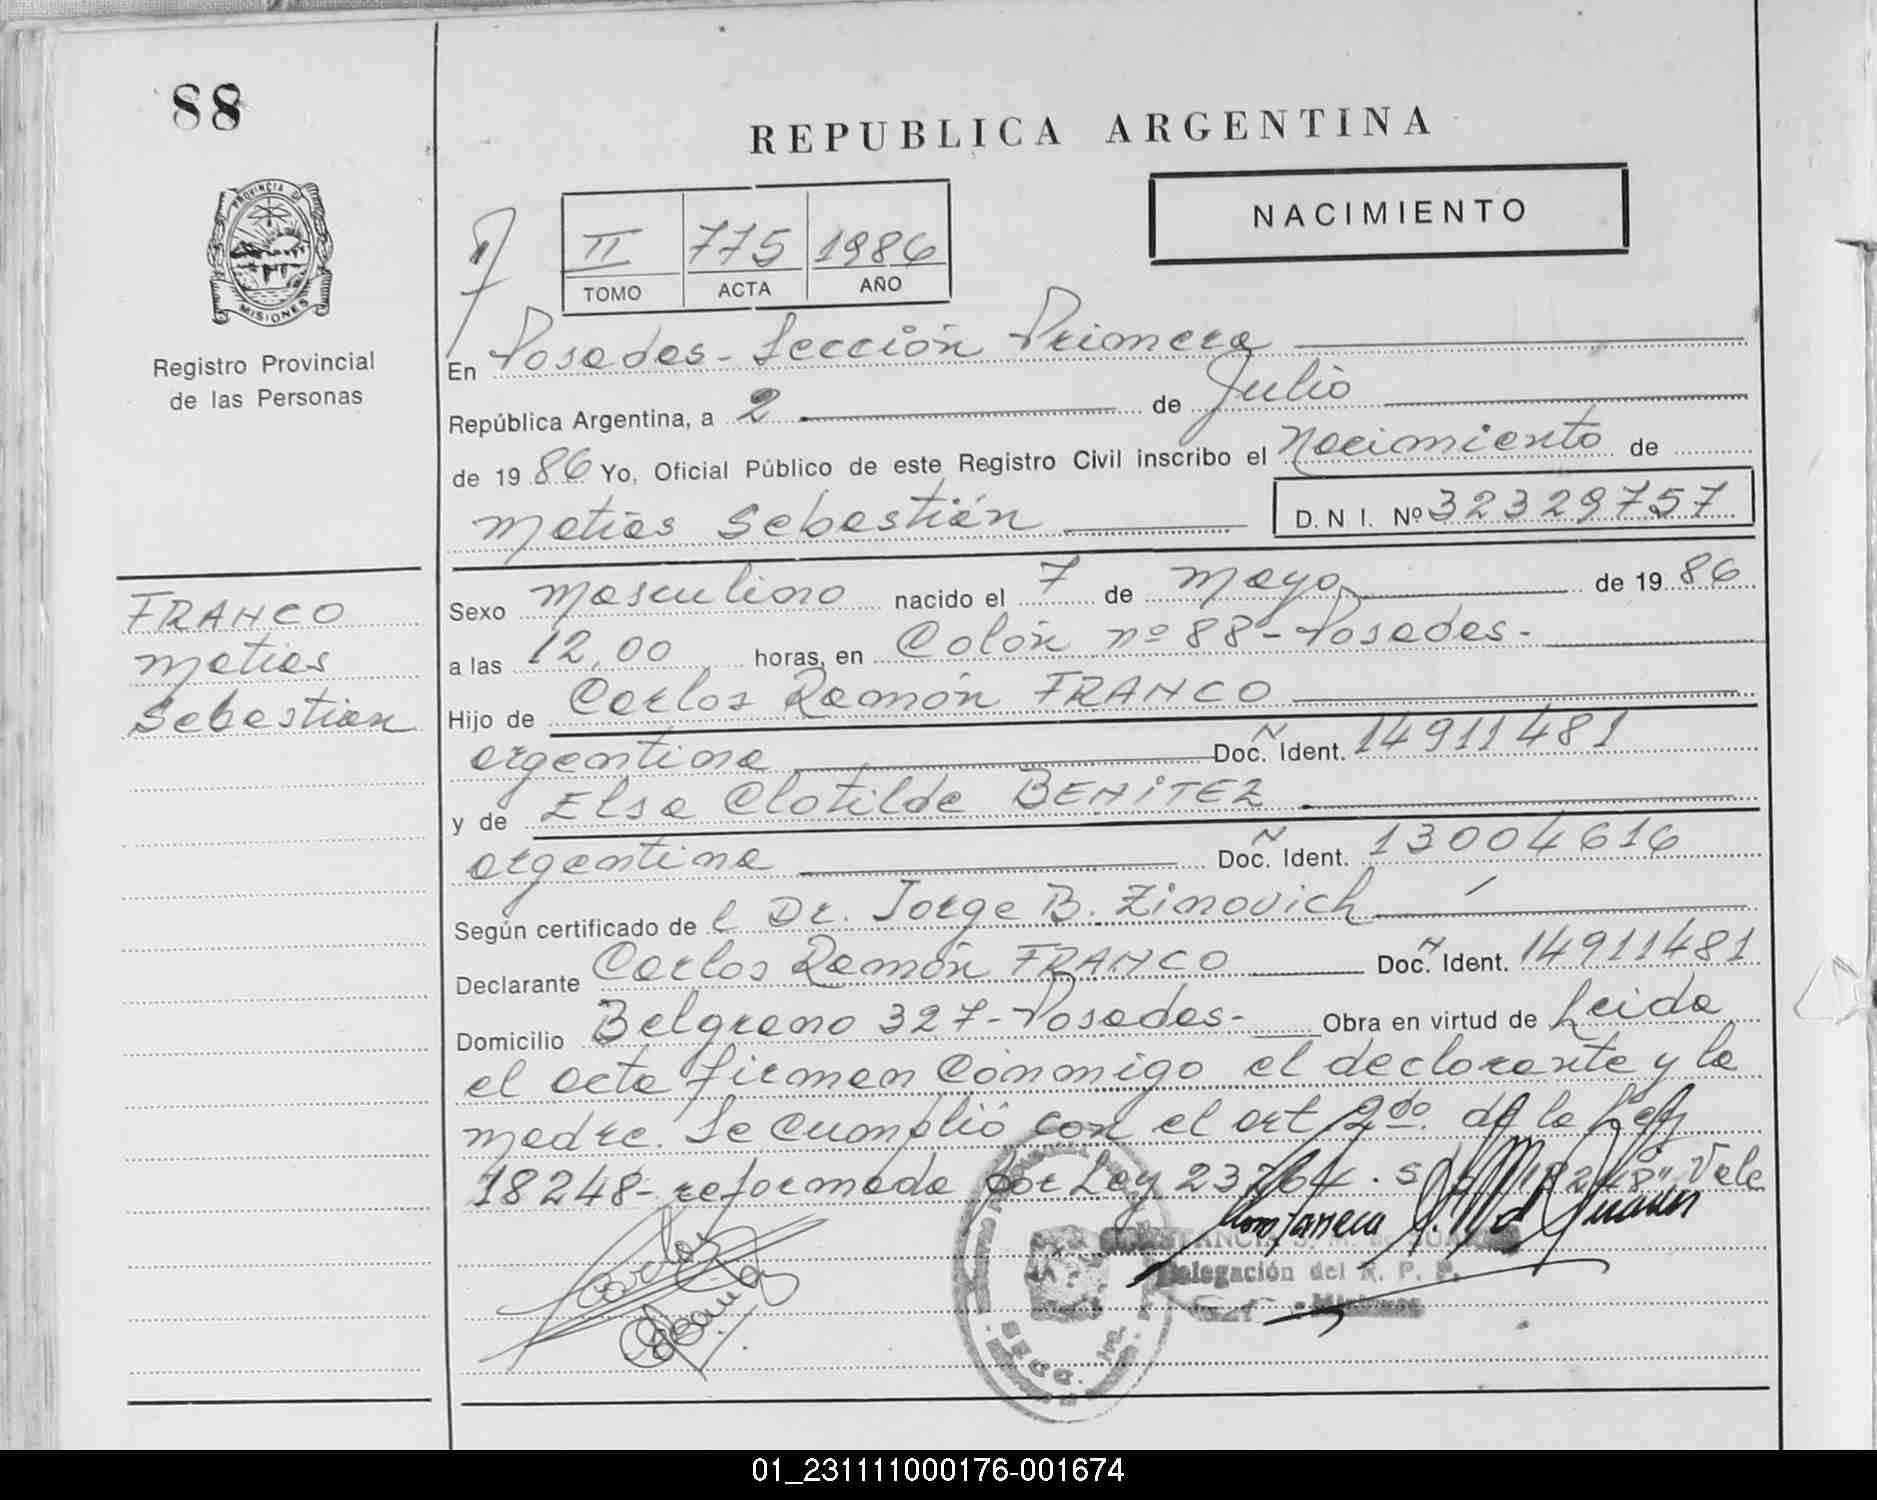 88
REPUBLICA ARGENTINA
PROVINCIA DE
MISIONES
Registro Provincial
de las Personas
NACIMIENTO
II 775 1986
TOMO ACTA AÑO
En Posadas - Sección Primera
República Argentina, a 2 de Julio
de 1986 Yo, Oficial Público de este Registro Civil inscribo el Nacimiento de
Matías Sebastián D.N I. Nº 32329757
FRANCO
Matias
Sebastian
Sexo masculino nacido el 7 de mayo de 1986
a las 12,00 horas, en Colón nº 88 - Posadas -
Hijo de Carlos Ramón FRANCO
argentina Doc. Ident. 14911481
y de Elsa Clotilde BENITEZ
argentina Doc. Ident. 13004616
Según certificado de l Dr. Jorge B. Zinovich
Declarante Carlos Ramón FRANCO Doc. Ident. 14911481
Domicilio Belgrano 327 - Posadas - Obra en virtud de Leida
el acta firman Conmigo el declarante y la
madre. Se Cumplió con el art 2do. de la Ley
18248 - reformada por Ley 23264. "18248" Vale
Delegación del R. P. P.
Misiones
SECC. 1ra.
01_231111000176-001674